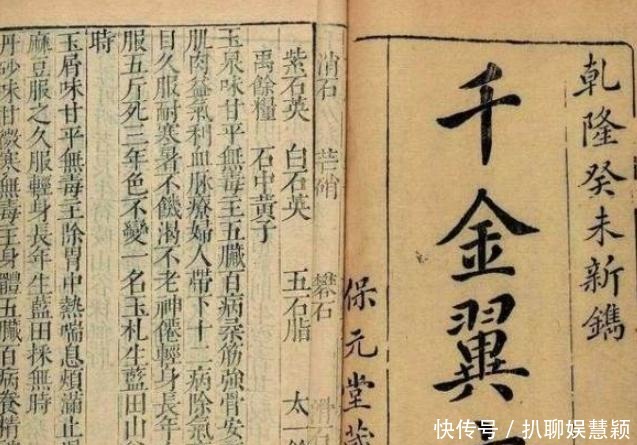 乾隆癸未新鐫
千金翼
保元堂藏
消石 芒硝 礬石 滑石
紫石英 白石英 五石脂 太一
禹餘糧 石中黃子
玉泉味甘平無毒主五臟百病柔筋強骨安
肌肉益氣利血脉療婦人帶下十二病除氣
目久服耐寒暑不饑渴不老神僊輕身長年
服五斤死三年色不變一名玉札生藍田山谷
時
玉屑味甘平無毒主除胃中熱喘息煩滿止
麻豆服之久服輕身長年生藍田採無時
丹砂味甘微寒無毒主身體五臟百病養精
快传号/扒聊娱慧颖